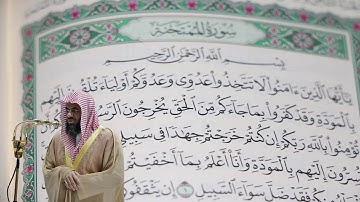 سُورَةُ المُمْتَحنَةِ
بِسْمِ اللَّهِ الرَّحْمَٰنِ الرَّحِيمِ
يَٰٓأَيُّهَا الَّذِينَ ءَامَنُوا لَا تَتَّخِذُوا عَدُوِّي وَعَدُوَّكُمْ أَوْلِيَآءَ تُلْقُونَ إِلَيْهِم
بِالْمَوَدَّةِ وَقَدْ كَفَرُوا بِمَا جَآءَكُم مِّنَ الْحَقِّ يُخْرِجُونَ الرَّسُو
تُؤْمِنُوا بِاللَّهِ رَبِّكُمْ إِن كُنتُمْ خَرَجْتُمْ جِهَٰدًا فِي سَبِيلِ
تُسِرُّونَ إِلَيْهِم بِالْمَوَدَّةِ وَأَنَا۠ أَعْلَمُ بِمَآ أَخْفَيْتُمْ
فَقَدْ ضَلَّ سَوَآءَ السَّبِيلِ ١ إِن يَثْقَفُو